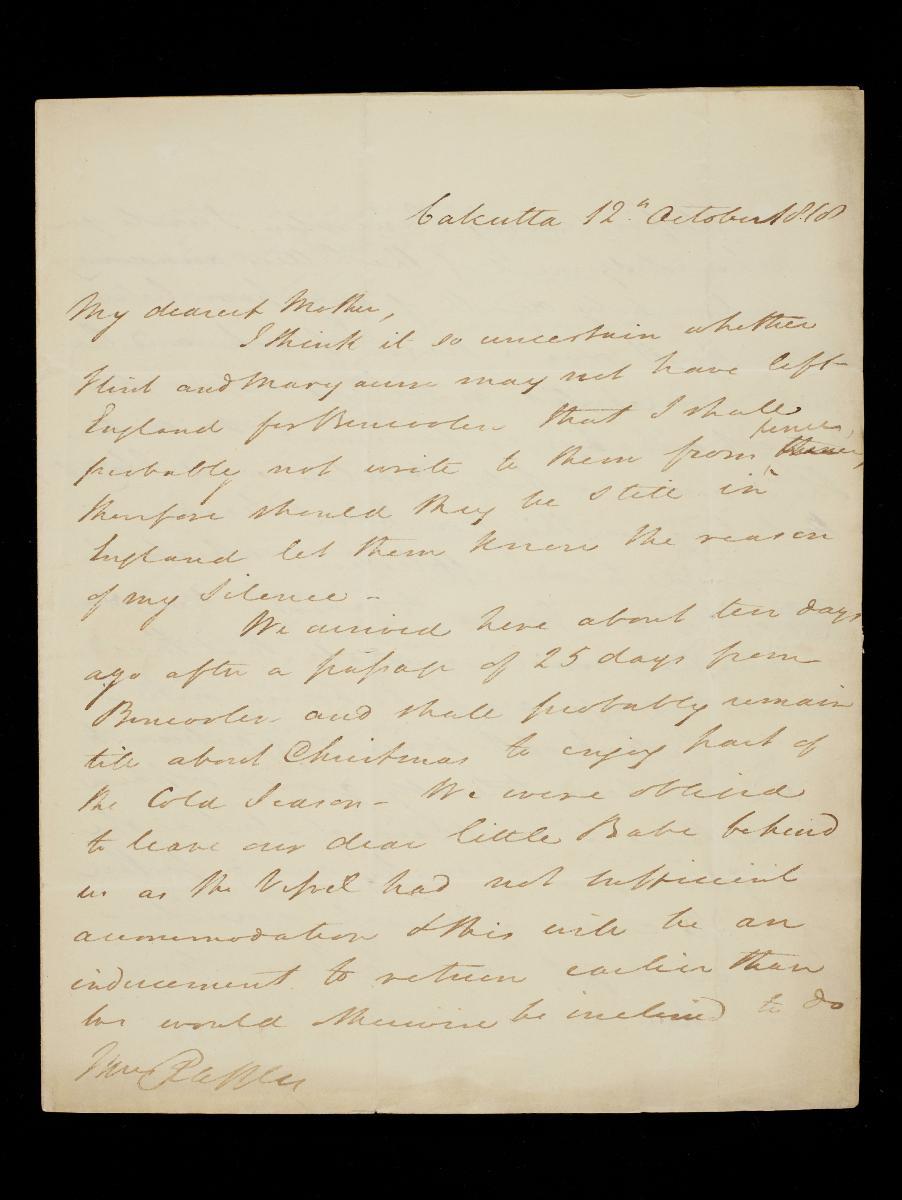 Calcutta 12th October 1818
My dearest Mother,
I think it so uncertain whether
Flint and Maryanne may not have left
England for Bencoolen that I shall
hence,
probably not write to them from
therefore should they be still in
England let them know the reason
of my Silence -
We arrived here about ten days
ago after a passage of 25 days from
Bencoolen and shall probably remain
till about Christmas to enjoy part of
the Cold Season - We were obliged
to leave our dear little Babe behind
us as the Vessel had not sufficient
accommodation & this will be an
inducement to return earlier than
we would otherwise be inclined to do
Mrs Raffles